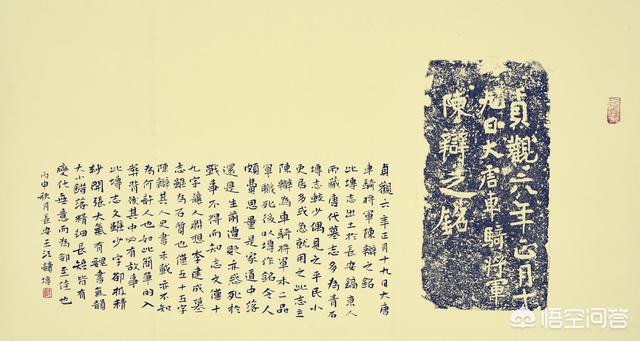 貞觀六年正月十
九日大唐車騎將軍
陳辯之銘
貞觀六年正月十九日大唐
車騎將軍陳辯之銘
此塼志出土於長安鎬京人
而藏唐代墓志多為青石
塼志較少偶見之平民小
吏居多或急就用之此志主
陳辯為車騎將軍本二品
軍職死後以塼作銘令人
頗費思量是家道中落
還是生前遭貶亦惑死於
戰事不得而知志文僅十
九字讓人聯想李建成墓
志雖為石質也僅五十五字
陳辯其人史書未載亦不知
為何許人也如此簡單的入
葬背後其中必有故事
此塼志文雖少字卻極精
妙開張大氣有魏書氣韻
大小錯落精細長短皆有
變化無意而為卻至佳也
丙申秋月長安王江
悟空问答